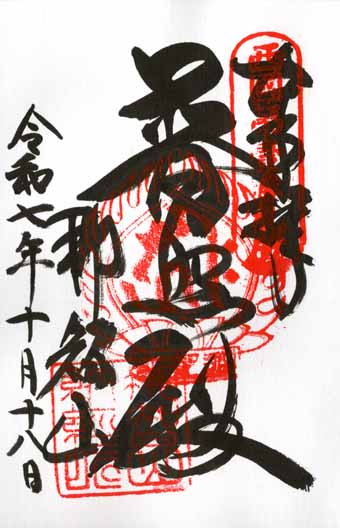 奉拝
普照殿
那智山
令和七年十月十八日